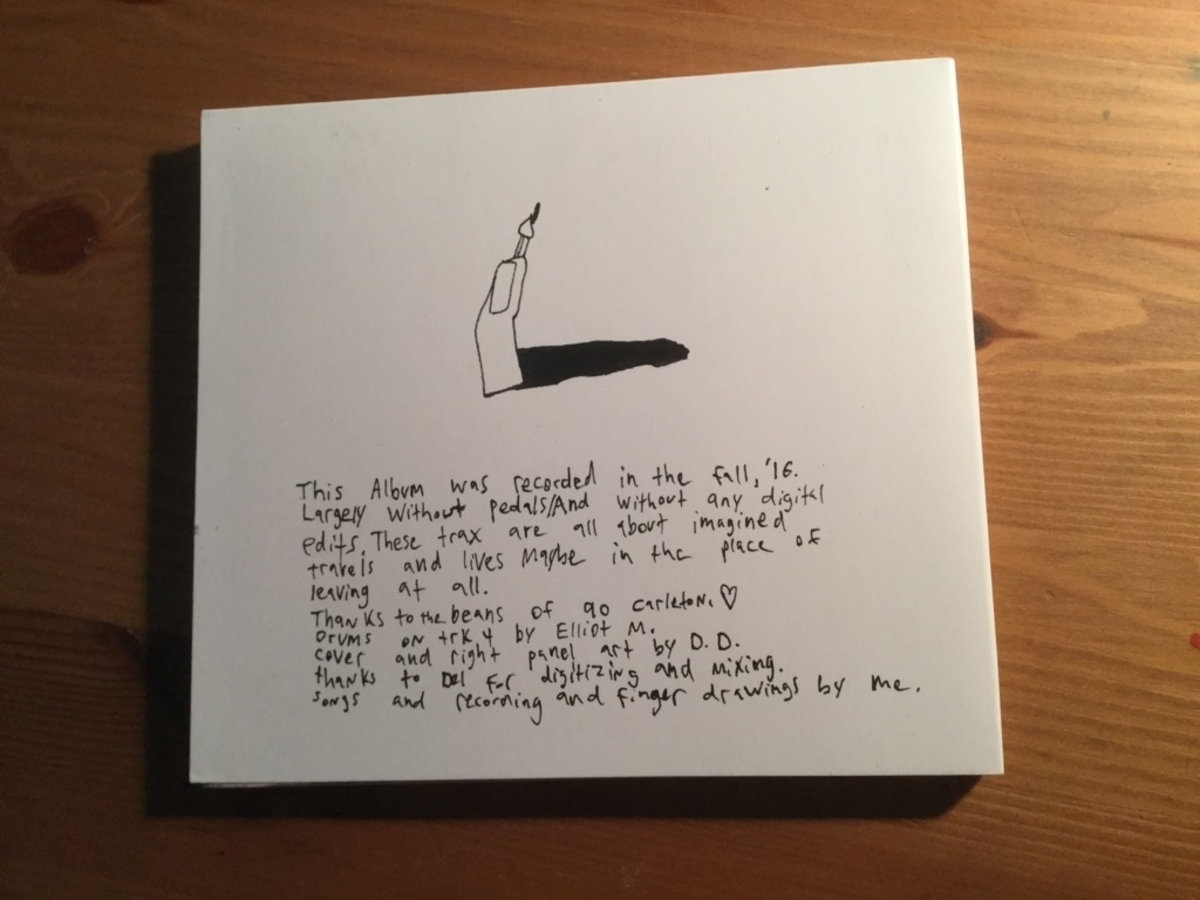 This Album was recorded in the fall, '16.
Largely Without pedals/And without any digital
edits. These trax are all about imagined
travels and lives Maybe in the place of
leaving at all.
Thanks to the beans of 90 carleton. ♡
Drums on trk 4 by Elliot M.
cover and right panel art by D. D.
thanks to Del for digitizing and mixing.
songs and recording and finger drawings by me.